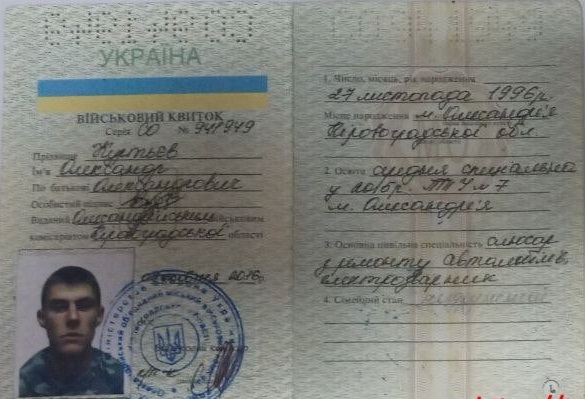 УКРАЇНА
ВІЙСЬКОВИЙ КВИТОК
Серія СО № 941949
Прізвище
Ім'я Олександр
По батькові Олександрович
Особистий підпис
Виданий Олександрійським міським
комісаріатом Кіровоградської області
2016р.
1. Число, місяць, рік народження
27 листопада 1996р.
Місце народження м. Олександрія
Кіровоградської обл.
2. Освіта середня спеціальна
у 2016р. ПТУ №7
м. Олександрія
3. Основна цивільна спеціальність слюсар
з ремонту автомобілів,
електрозварник
4. Сімейний стан